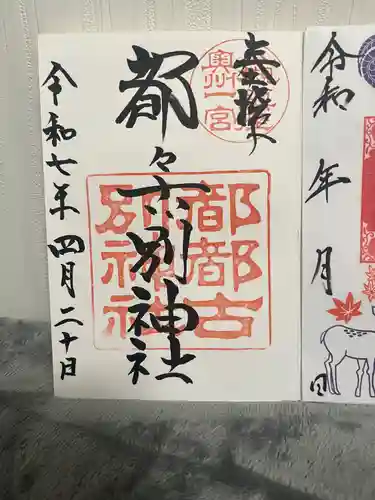 奉拝
奥州一宮
都々古別神社
都都古
別神社
令和七年四月二十日
令和 年 月 日